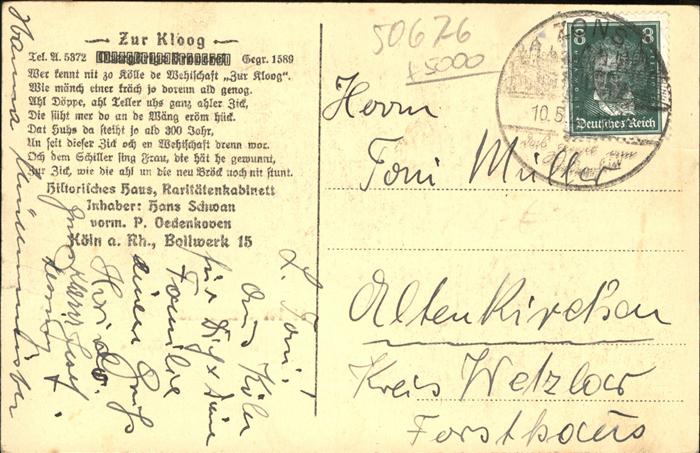 Zur Kloog
Tel. A. 5372 Gegr. 1589
Wer kennt nit zo Kölle de Wehtschaft „Zur Kloog“.
Wie mänch einer träch jo dorenn ald genog.
Ahl Döppe, ahl Teller uhs ganz ahler Zick,
Die süht mer do an de Wäng eröm hück.
Dat Huhs da steiht jo ald 300 Johr,
An seit dieser Zick och en Wehtschaft drenn wor.
Och dem Schiller sing Frau, die hät he gewunnt,
Zur Zick, wie die ahl un die neu Bröck noch nit stunt.
Historisches Haus, Raritätenkabinett
Inhaber: Hans Schwan
vorm. P. Oedenkoven
Köln a. Rh., Bollwerk 15
L. Toni!
Aus Köln
für Dich & Deine
Familie
einen Gruß
50676
+5000
ZONS
10.5.
8 8
Deutsches Reich
Herrn
Toni Müller
Altenkirchen
Kreis Wetzlar
Forsthaus